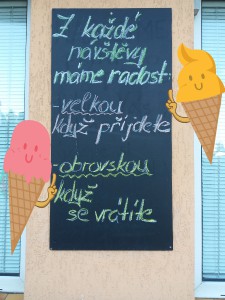 Z každé
návštěvy
máme radost:
-velkou
když přijdete
-obrovskou
když
se vrátíte